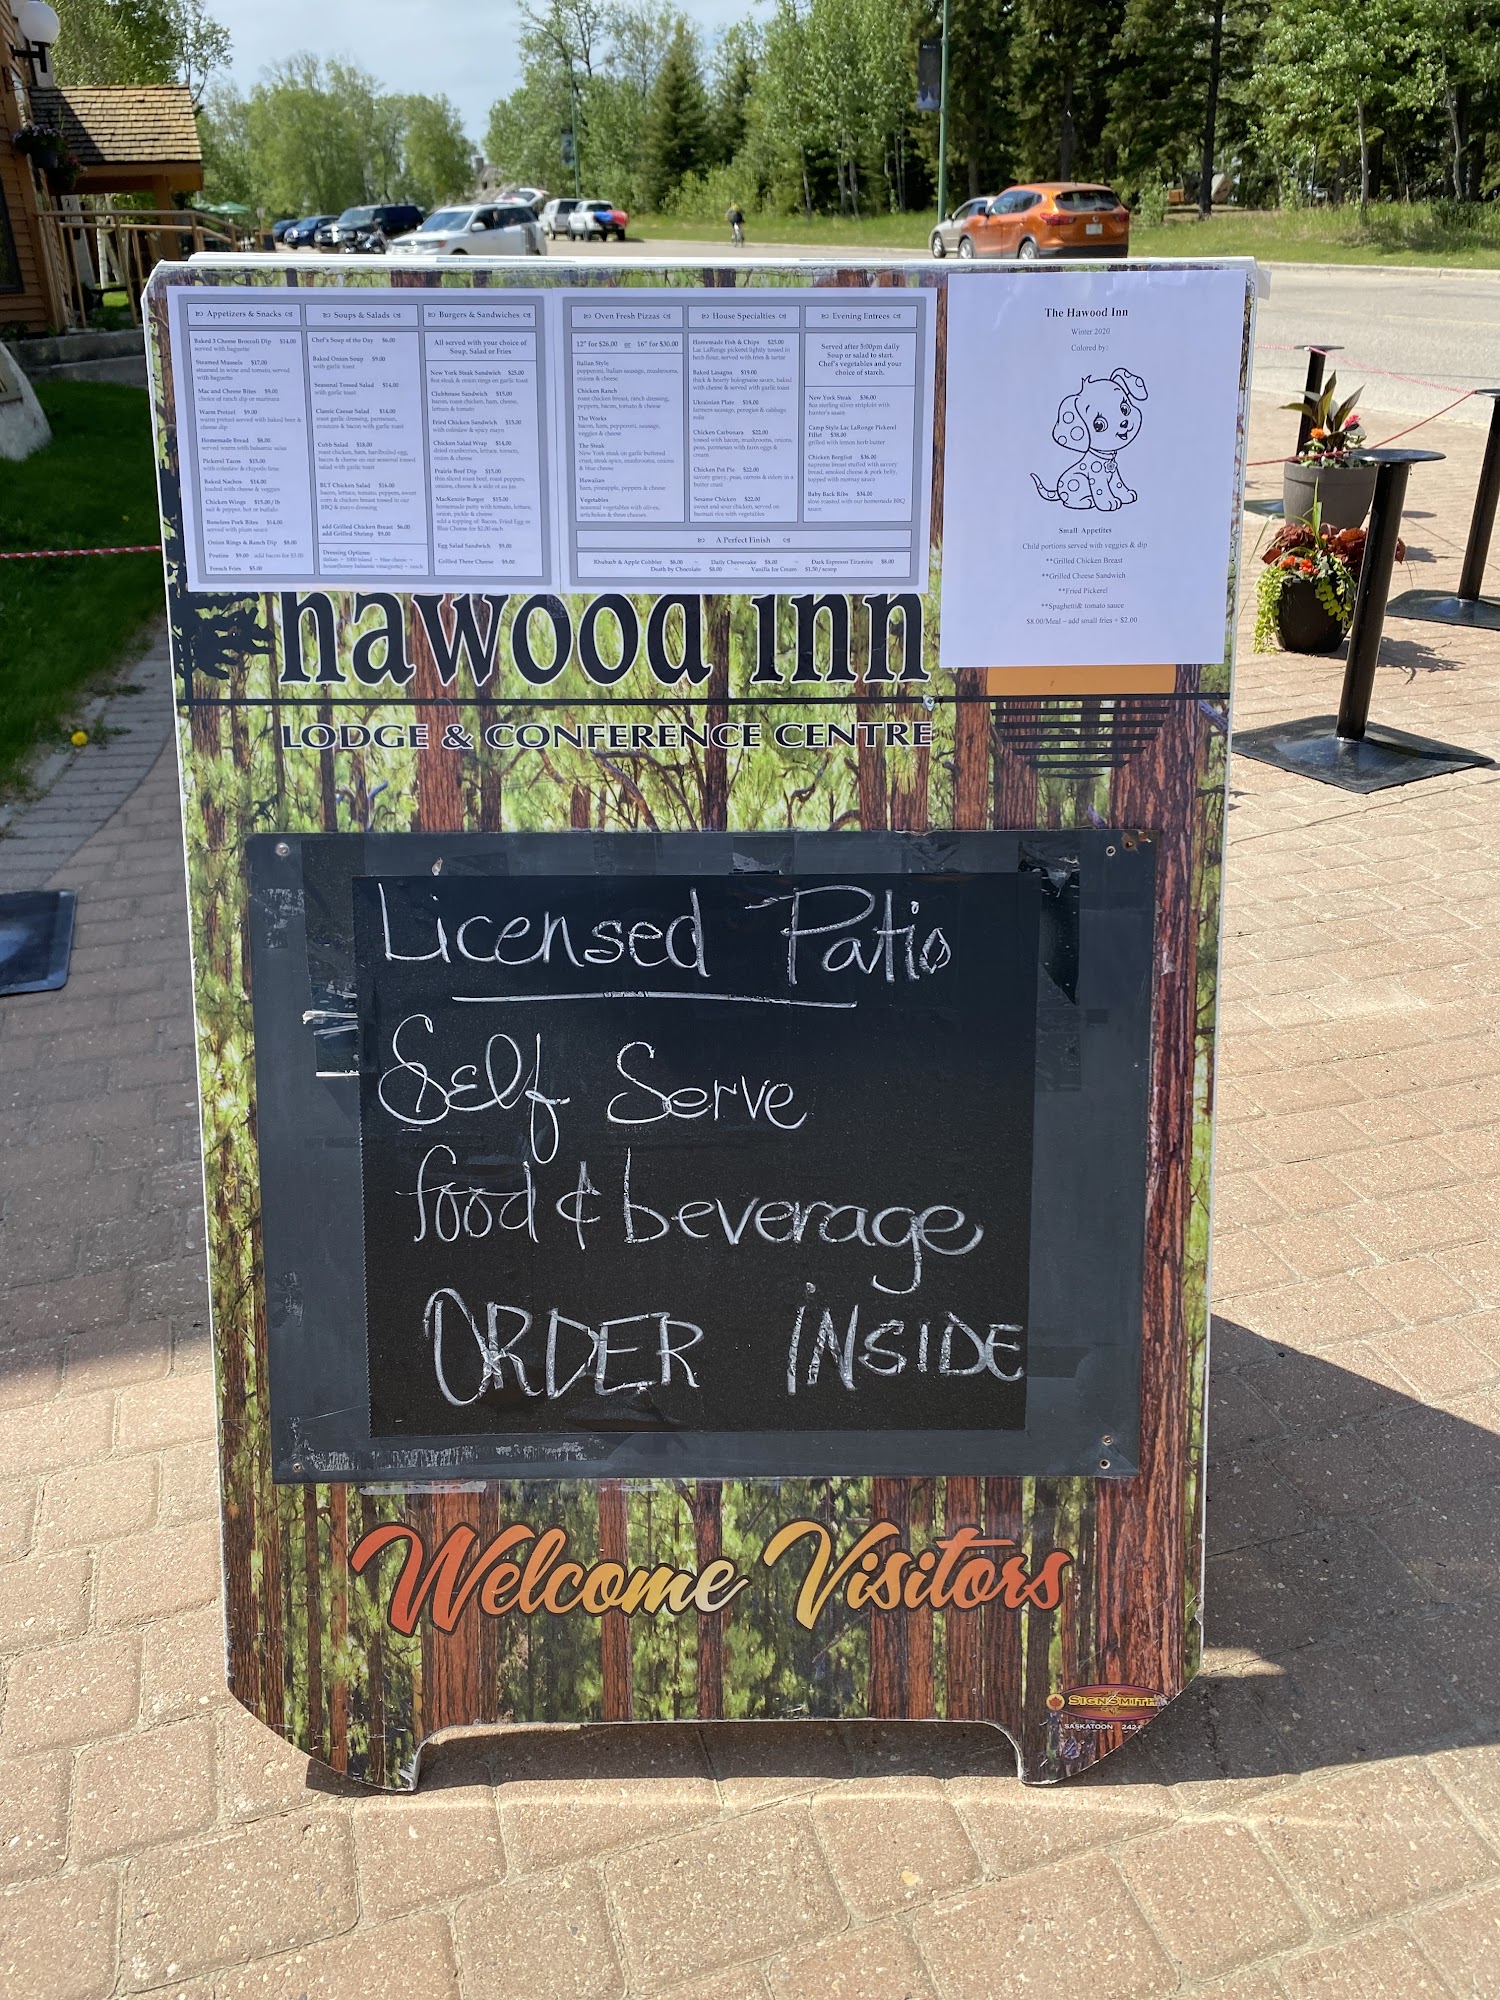 Appetizers & Snacks
Baked 3 Cheese Broccoli Dip $14.00
served with baguette
Steamed Mussels $17.00
steamed in wine and tomato, served
with baguette
Mac and Cheese Bites $9.00
choice of ranch dip or marinara
Warm Pretzel $9.00
warm pretzel served with baked beer &
cheese dip
Homemade Bread $8.00
served warm with balsamic salsa
Pickerel Tacos $15.00
with coleslaw & chipotle lime
Baked Nachos $14.00
loaded with cheese & veggies
Chicken Wings $15.00/lb
salt & pepper, hot or buffalo
Boneless Pork Bites $14.00
served with plum sauce
Onion Rings & Ranch Dip $8.00
Poutine $9.00 add bacon for $3.00
French Fries $5.00
Soups & Salads
Chef's Soup of the Day $6.00
Baked Onion Soup $9.00
with garlic toast
Seasonal Tossed Salad $14.00
with garlic toast
Classic Caesar Salad $14.00
roast garlic dressing, parmesan,
croutons & bacon with garlic toast
Cobb Salad $18.00
roast chicken, ham, hardboiled egg,
bacon & cheese on our seasonal tossed
salad with garlic toast
BLT Chicken Salad $16.00
bacon, lettuce, tomato, peppers, sweet
corn & chicken breast tossed in our
BBQ & mayo dressing
add Grilled Chicken Breast $6.00
add Grilled Shrimp $9.00
Dressing Options:
italian ~ 1000 island ~ blue cheese ~
house(honey balsamic vinaigrette) ~ ranch
Burgers & Sandwiches
All served with your choice of
Soup, Salad or Fries
New York Steak Sandwich $25.00
8oz steak & onion rings on garlic toast
Clubhouse Sandwich $15.00
bacon, roast chicken, ham, cheese,
lettuce & tomato
Fried Chicken Sandwich $15.00
with coleslaw & spicy mayo
Chicken Salad Wrap $14.00
dried cranberries, lettuce, tomato,
onion & cheese
Prairie Beef Dip $15.00
thin sliced roast beef, roast peppers,
onions, cheese & a side of au jus
MacKenzie Burger $15.00
homemade patty with tomato, lettuce,
onion, pickle & cheese
add a topping of: Bacon, Fried Egg or
Blue Cheese for $2.00 each
Egg Salad Sandwich $9.00
Grilled Three Cheese $9.00
Oven Fresh Pizzas
12" for $26.00 or 16" for $30.00
Italian Style
pepperoni, Italian sausage, mushrooms,
onions & cheese
Chicken Ranch
roast chicken breast, ranch dressing,
peppers, bacon, tomato & cheese
The Works
bacon, ham, pepperoni, sausage,
veggies & cheese
The Steak
New York steak on garlic buttered
crust, steak spice, mushrooms, onions
& blue cheese
Hawaiian
ham, pineapple, peppers & cheese
Vegetables
seasonal vegetables with olives,
artichokes & three cheeses
House Specialties
Homemade Fish & Chips $25.00
Lac LaRonge pickerel lightly tossed in
herb flour, served with fries & tartar
Baked Lasagna $19.00
thick & hearty bolognaise sauce, baked
with cheese & served with garlic toast
Ukrainian Plate $18.00
farmers sausage, perogies & cabbage
rolls
Chicken Carbonara $22.00
tossed with bacon, mushrooms, onions,
peas, parmesan with farm eggs &
cream
Chicken Pot Pie $22.00
savory gravy, peas, carrots & elders in a
butter crust
Sesame Chicken $22.00
sweet and sour chicken, served on
basmati rice with vegetables
Evening Entrees
Served after 5:00pm daily
Soup or salad to start.
Chef's vegetables and your
choice of starch.
New York Steak $36.00
8oz sterling silver striploin with
hunter's sauce
Camp Style Lac LaRonge Pickerel
Fillet $38.00
grilled with lemon herb butter
Chicken Bergfist $36.00
supreme breast stuffed with savory
bread, smoked cheese & pork belly,
topped with mornay sauce
Baby Back Ribs $34.00
slow roasted with our homemade BBQ
sauce
A Perfect Finish
Rhubarb & Apple Cobbler $8.00 ~ Daily Cheesecake $8.00 ~ Dark Espresso Tiramisu $8.00
Death by Chocolate $8.00 ~ Vanilla Ice Cream $1.50/scoop
The Hawood Inn
Winter 2020
Colored by:
Small Appetites
Child portions served with veggies & dip
**Grilled Chicken Breast
**Grilled Cheese Sandwich
**Fried Pickerel
**Spaghetti& tomato sauce
$8.00/Meal – add small fries + $2.00
hawood inn
LODGE & CONFERENCE CENTRE
Licensed Patio
Self Serve
food & beverage
ORDER INSIDE
Welcome Visitors
SIGNSMITH
SASKATOON 242-